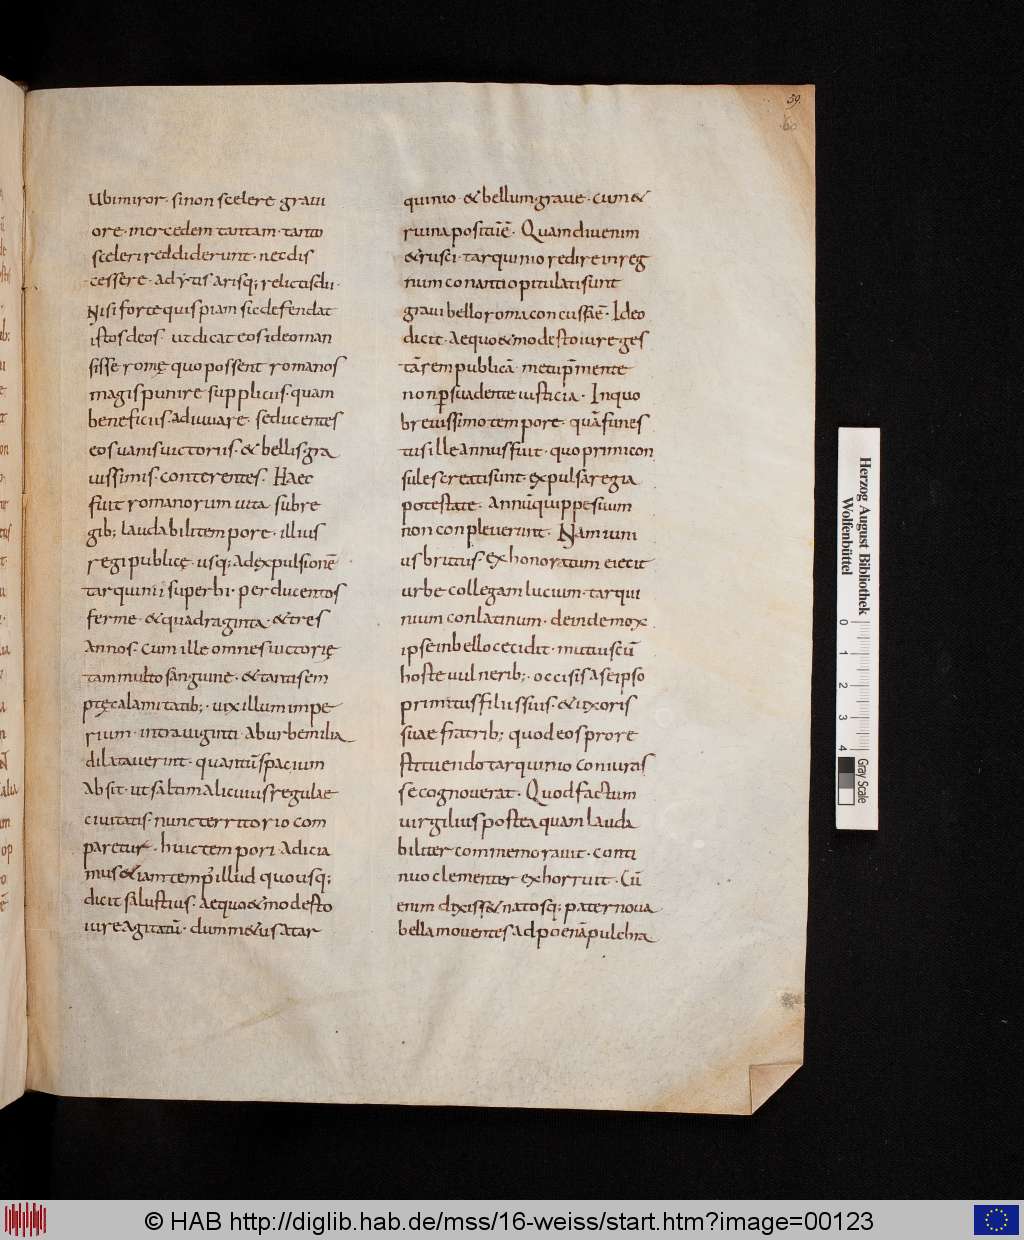 59
60
Ubi miror · si non scelere graui
ore · mercedem tantam · tanto
sceleri reddiderunt · nec dis
cessere · adytis arisq; relictis dii ·
Nisi forte quispiam sic defendat
istos deos · ut dicat eos ideo man
sisse romę quo possent romanos
magis punire suppliciis · quam
beneficiis · adiuuare · seducentes
eos uanis uictoriis · & bellis gra
uissimis · conterentes · Haec
fuit romanorum uita · sub re
gib; laudabili tempore · illius
regi publicę · usq; ad expulsionē
tarquinii superbi · per ducentos
ferme · & quadraginta · & tres
Annos · cum ille omnes uictorię
tam multo sanguine · & tantis em
ptę calamitatib; · uix illum impe
rium · intra uiginti · ab urbe milia
dilatauerint · quantū spacium
Absit · ut saltim alicuius regulae
ciuitatis · nunc territorio com
paretur · huic tempori adicia
mus &iam temp' illud quo usq;
dicit salustius · aequo & modesto
iure agitatū · dum m&us a tar
quinio · & bellum graue · cum &
ruina positūē · Quamdiu enim
&rusci · tarquinio redire in reg
num conanti opitulati sunt
graui bello roma concussāē · Ideo
dicit · Aequo & modesto iure ges
tā rem publicā · metu p̄mente
non p̱suadente iusticia · In quo
breuissimo tempore · quā funes
tus ille annus fuit · quo primi con
sules creati sunt · expulsa regia
potestate · Annū quippe suum
non conpleuerunt · Nam iuni
us brutus · exhonoratum eiecit
urbe collegam lucium · tarqui
nium conlatinum · deinde mox
ipse in bello cecidit · mutuis cū
hoste uulnerib; · occisis a se ipso
primitus filiis suis · & uxoris
suae fratrib; quod eos pro re
stituendo tarquinio coniuras
se cognouerat · Quod factum
uirgilius postea quam lauda
biliter commemorauit · conti
nuo clementer exhorruit · Cū
enim dixiss& natosq; pater noua
bella mouentes ad poenā pulchra
Herzog August Bibliothek
Wolfenbüttel
0 1 2 3 4
Gray Scale
© HAB http://diglib.hab.de/mss/16-weiss/start.htm?image=00123